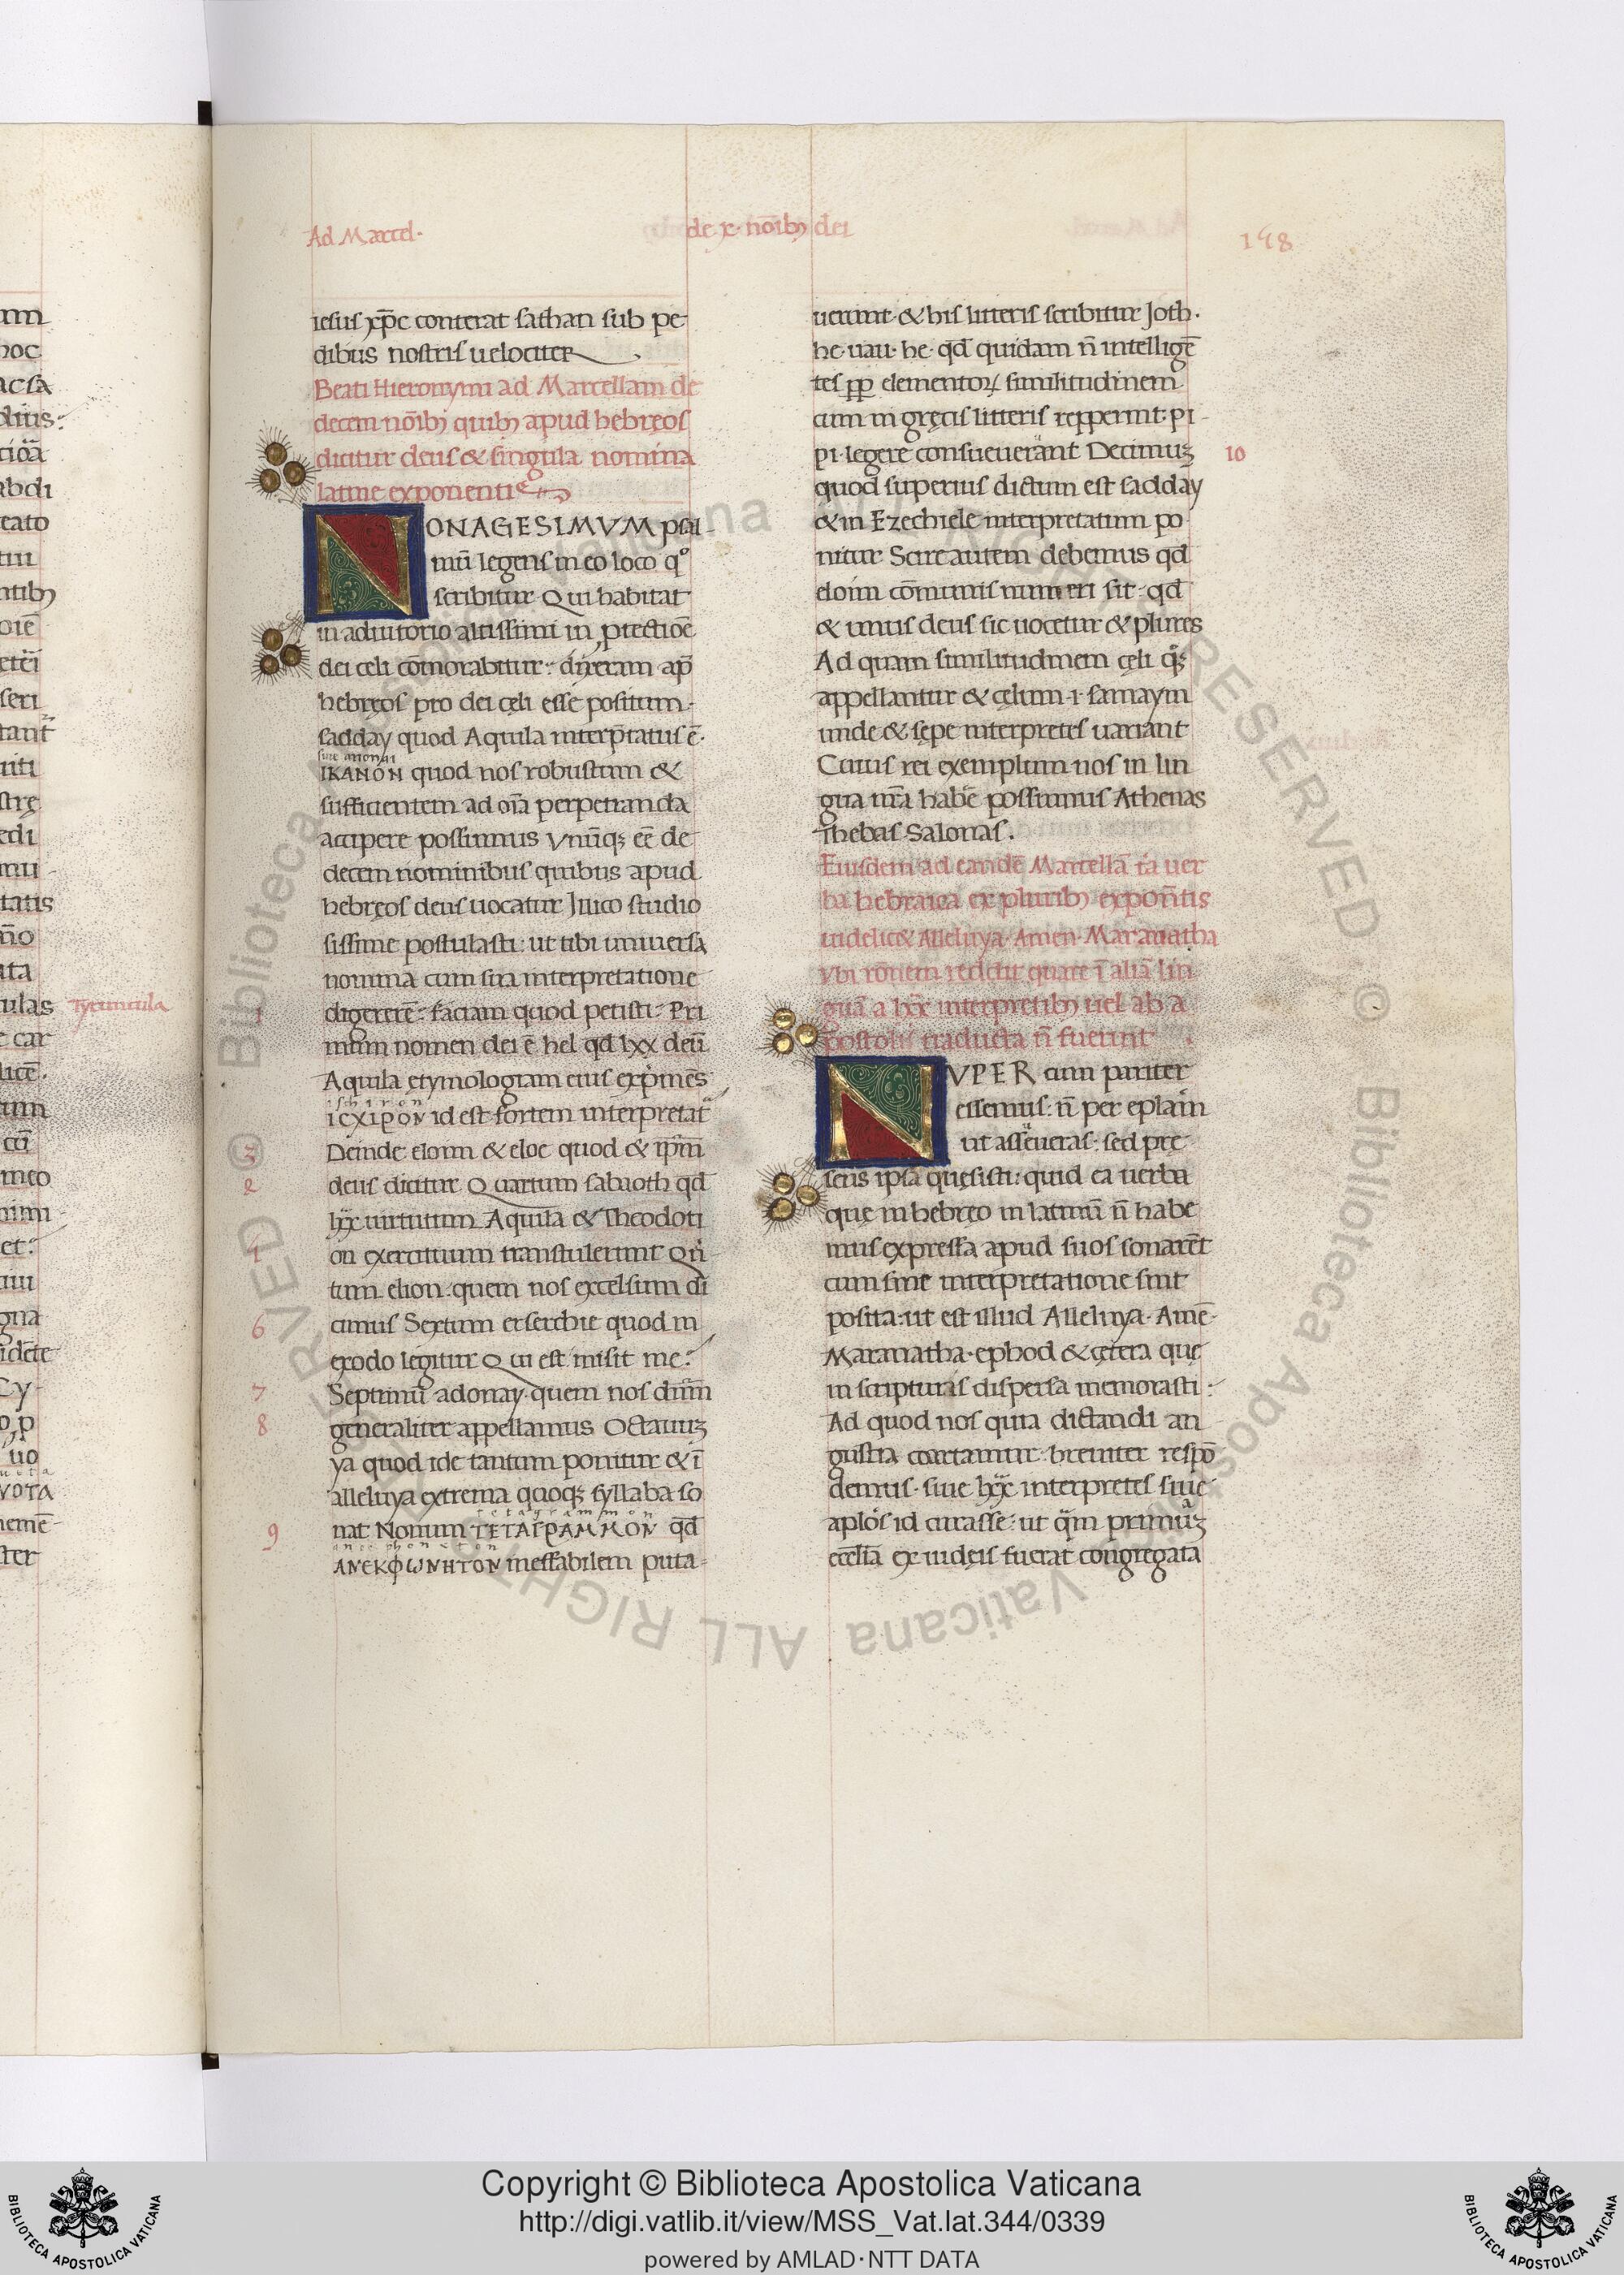 Ad Marcel.
de x. noībꝫ dei
148
iesus xp̄c conterat sathan sub pe
dibus nostris uelociter
Beati Hieronymi ad Marcellam de
decem noībꝫ quibꝫ apud hebręos
dicitur deus & singula nomina
latine exponentis
NONAGESIMVM psal
mū legens in eo loco qͦ
scribitur Qui habitat
in adiutorio altissimi in ꝓtectiōe
dei celi cōmorabitur: dixeram ap̄
hebręos pro dei cęli esse positum.
sadday quod Aquila interp̄tatus ē.
IKANON quod nos robustum &
sufficientem ad oīa perpetranda
accipere possumus Vnūqꝫ eē de
decem nominibus quibus apud
hebręos deus uocatur Illico studio
sissime postulasti: ut tibi uniuersa
nomina cum sua interpretatione
1
digererē: faciam quod petisti: Pri
mum nomen dei ē hel qd̄ lxx deū
Aquila etymologiam eius exp̄mēs
ischiron
ICXIPON id est fortem interpretat᷑
3
Deinde eloim & eloe quod & ip̄m̄
2
deus dicitur Quartum sabaoth qd̄
lxx uirtutum Aquila & Theodoti
on exercituum transtulerunt Qn̄
tum elion: quem nos excelsum di
6
cimus Sextum eserehie quod in
exodo legitur Qui est misit me:
7
Septimū adonay quem nos dn̄m
8
generaliter appellamus Octauuꝫ
ya quod ide tantum ponitur & ī
alleluya extrema quoqꝫ syllaba so
tetagrammon
9
nat Nonum TETAΓPAMMON qd̄
anecphoneton
ANEKΦωNHTON ineffabilem puta
uerunt. & his litteris scribitur Joth.
he. uau. he. qd̄ quidam n̄ intelligē
tes ꝓp elementoꝝ similitudinem
cum in gręcis litteris reppererint. pi
pi. legere consueuerant Decimuꝫ
10
quod superius dictum est sadday
& in Ezechiele interpretatum po
nitur Scire autem debemus qd̄
eloim cōmunis numeri sit. qd̄
& unus deus sic uocetur & plures
Ad quam similitudinem cęli qͣꝫ
appellantur & cęlum .i. samaym
unde & sępe interpretes uariant
Cuius rei exemplum nos in lin
gua nr̄a habē possumus Athenas
Thebas. Salonas.
Eiusdem ad eandē Marcellā ła uer
ba hebraica ex pluribꝫ expon̄tis
uidelic& Alleluya. Amen. Maranatha
Vbi rōnem reddit quare ī aliā lin
guā a lxx interpretibꝫ uel ab a
postolis traducta n̄ fuerint
NVPER cum pariter
essemus: n̄ per ep̄lam
ut asseueras: sed prę
sens ipsa quęsisti: quid ea uerba
quę in hebręo in latinū n̄ habe
mus expressa apud suos sonarēt
cum sine interpretatione sint
posita: ut est illud Alleluya. Amē.
Maranatha. ephod & cętera quę
in scripturas dispersa memorasti:
Ad quod nos quia dictandi an
gustia coartamur. breuiter respō
demus. siue lxx interpretes siue
ap̄los id curasse: ut qm̄ primuꝫ
ecc̄lia ex iudęis fuerat congregata
Tyruncula
Copyright © Biblioteca Apostolica Vaticana
http://digi.vatlib.it/view/MSS_Vat.lat.344/0339
powered by AMLAD·NTT DATA
BIBLIOTECA APOSTOLICA VATICANA
BIBLIOTECA APOSTOLICA VATICANA